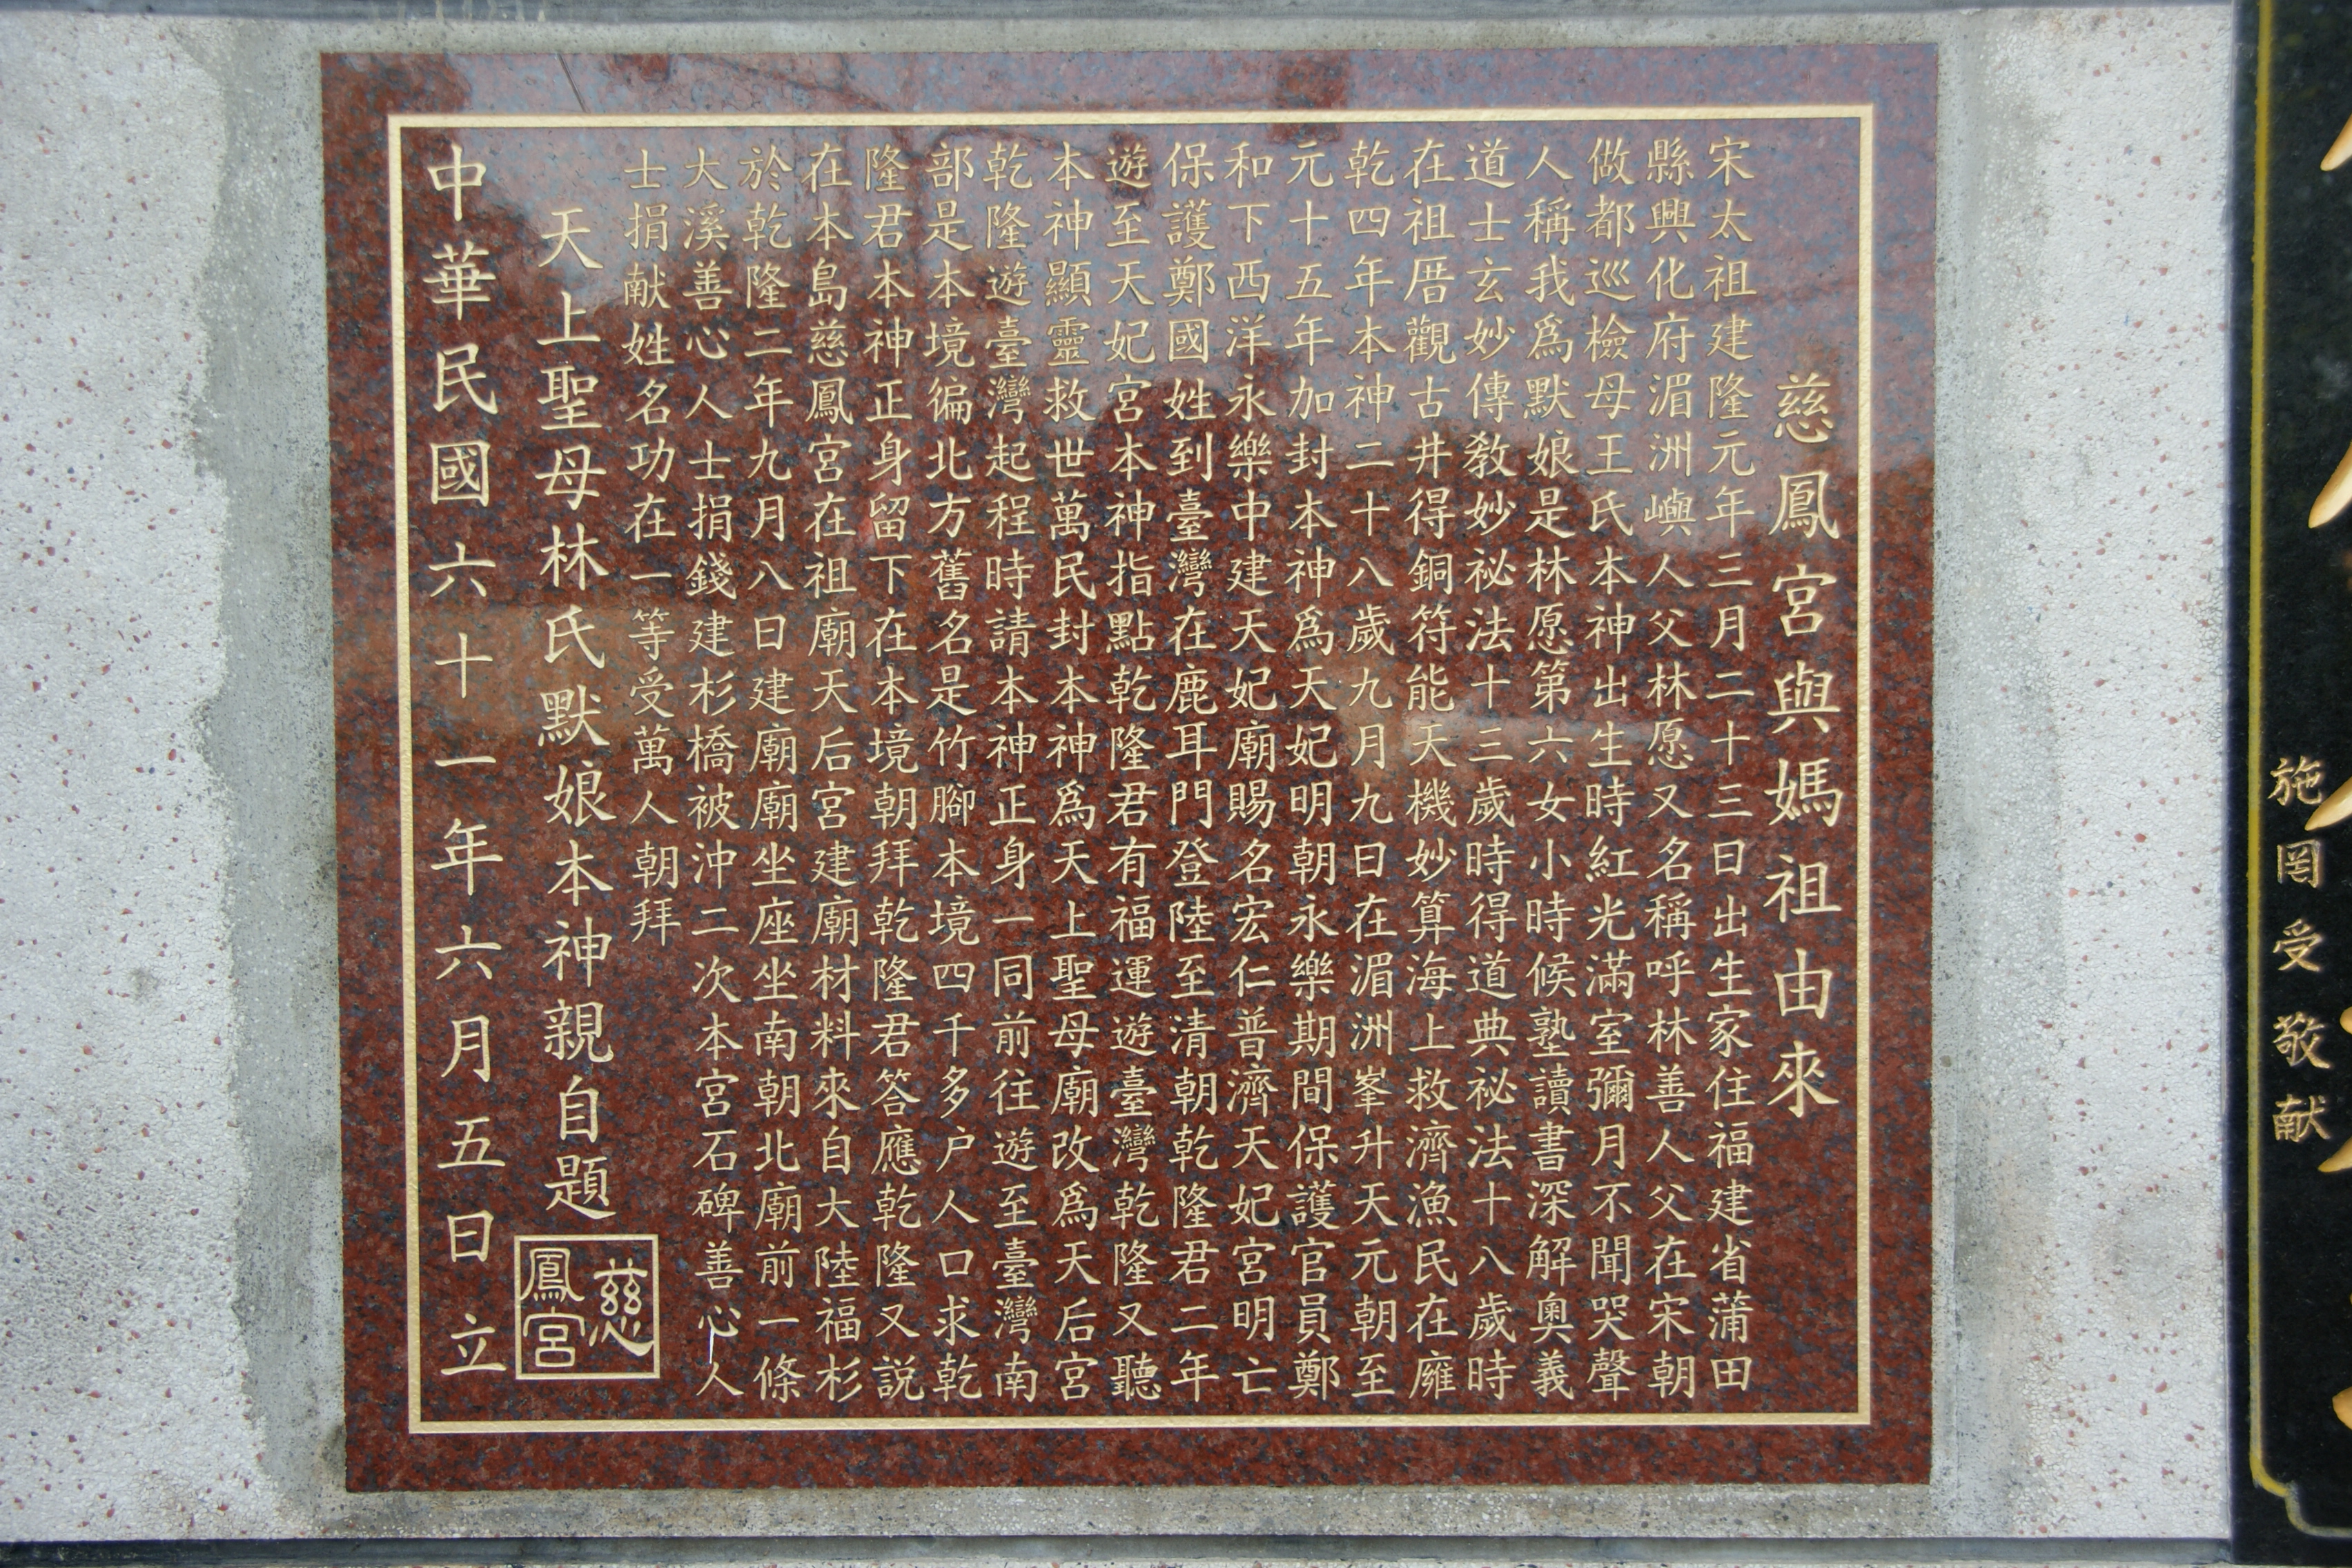 慈鳳宮與媽祖由來
宋太祖建隆元年三月二十三日出生家住福建省蒲田
縣興化府湄洲嶼人父林愿又名稱呼林善人父在宋朝
做都巡檢母王氏本神出生時紅光滿室彌月不聞哭聲
人稱我為默娘是林愿第六女小時候塾讀書深解奧義
道士玄妙傳教妙祕法十三歲時得道典祕法十八歲時
在祖厝觀古井得銅符能天機妙算海上救濟漁民在廱
乾四年本神二十八歲九月九日在湄洲峯升天元朝至
元十五年加封本神為天妃明朝永樂期間保護官員鄭
和下西洋永樂中建天妃廟賜名宏仁普濟天妃宮明亡
保護鄭國姓到臺灣在鹿耳門登陸至清朝乾隆君二年
遊至天妃宮本神指點乾隆君有福運遊臺灣乾隆又聽
本神顯靈救世萬民封本神為天上聖母廟改為天后宮
乾隆遊臺灣起程時請本神正身一同前往遊至臺灣南
部是本境徧北方舊名是竹腳本境四千多户人口求乾
隆君本神正身留下在本境朝拜乾隆君答應乾隆又説
在本島慈鳳宮在祖廟天后宮建廟材料來自大陸福杉
於乾隆二年九月八日建廟廟坐座坐南朝北廟前一條
大溪善心人士捐錢建杉橋被沖二次本宮石碑善心人
士捐献姓名功在一等受萬人朝拜
天上聖母林氏默娘本神親自題
慈鳳宮
中華民國六十一年六月五日立
施罔受敬献